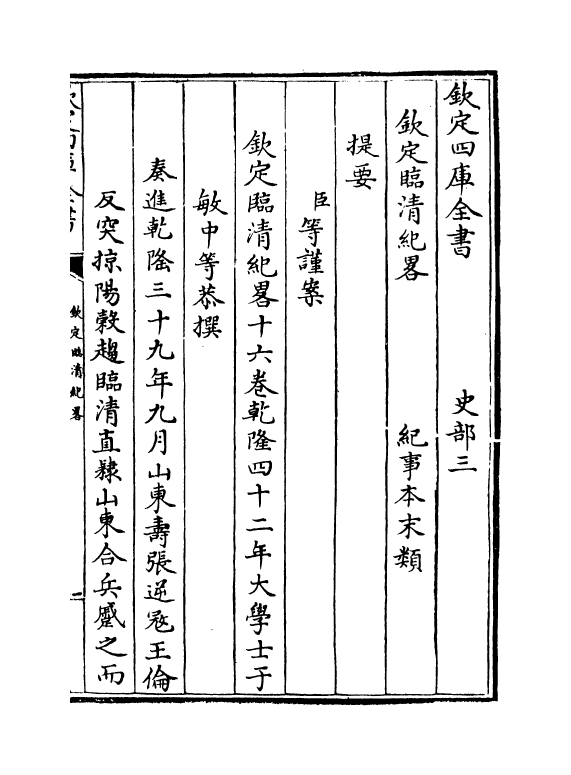 欽定四庫全書　史部三
欽定臨清紀畧　紀事本末類
提要
臣等謹案
欽定臨清紀畧十六卷乾隆四十二年大學士于
敏中等恭撰
奏進乾隆三十九年九月山東壽張逆冦王倫
反突掠陽榖趨臨清直隸山東合兵蹙之而
欽定臨清紀畧